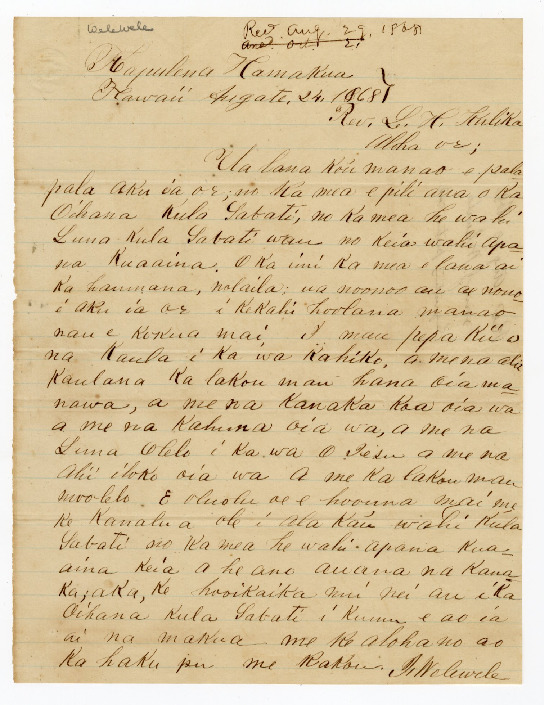 Welewele
Rec. Aug. 29, 1868
ans. Oct. 2,
Kapulena Hamakua
Hawaii Augate, 24, 1868
Rev. L. H. Kulika
Aloha oe;
Ua lana koú manao e pala
pala aku ia oe; m Ka mea e pili ana o Ka
Oihana Kula Sabati, no Ka mea he wahi
Luna Kula Sabati wau no Keia wahi apa-
na Kuaaina. O ka imi Ka mea e lana ai
Ka hanuana, nolaila; ua noonoo au ae nono-
i aku ia oe i Kekahi hoolana manao
nau e Kokua mai, I mau pepa Kii o
na Kaula i Ka wa Kahiko, a me na alii
Kaulana Ka lakou mau hana oia ma-
nawa, a me na Kanaka Koa oia wa
a me na Kahuna oia wa, a me na
Luna Olelo i Ka wa O Iesu a me na
alii iloko oia wa a me Ka lakou mau
moolelo. E oluolu oe e hoouna mai me
Ke Kanalua ole i ala Kau wahi Kula
Sabati no Ka mea he wahi apana Kua-
aina Keia a he ano auana na Kana-
Ka, aka, Ke hooikaika mii nei au i Ka
Oihana Kula Sabati i Kumu e ao ia
ai na makua me Ke aloha no ao
Ka haku pu me Kakou. J. Welewele